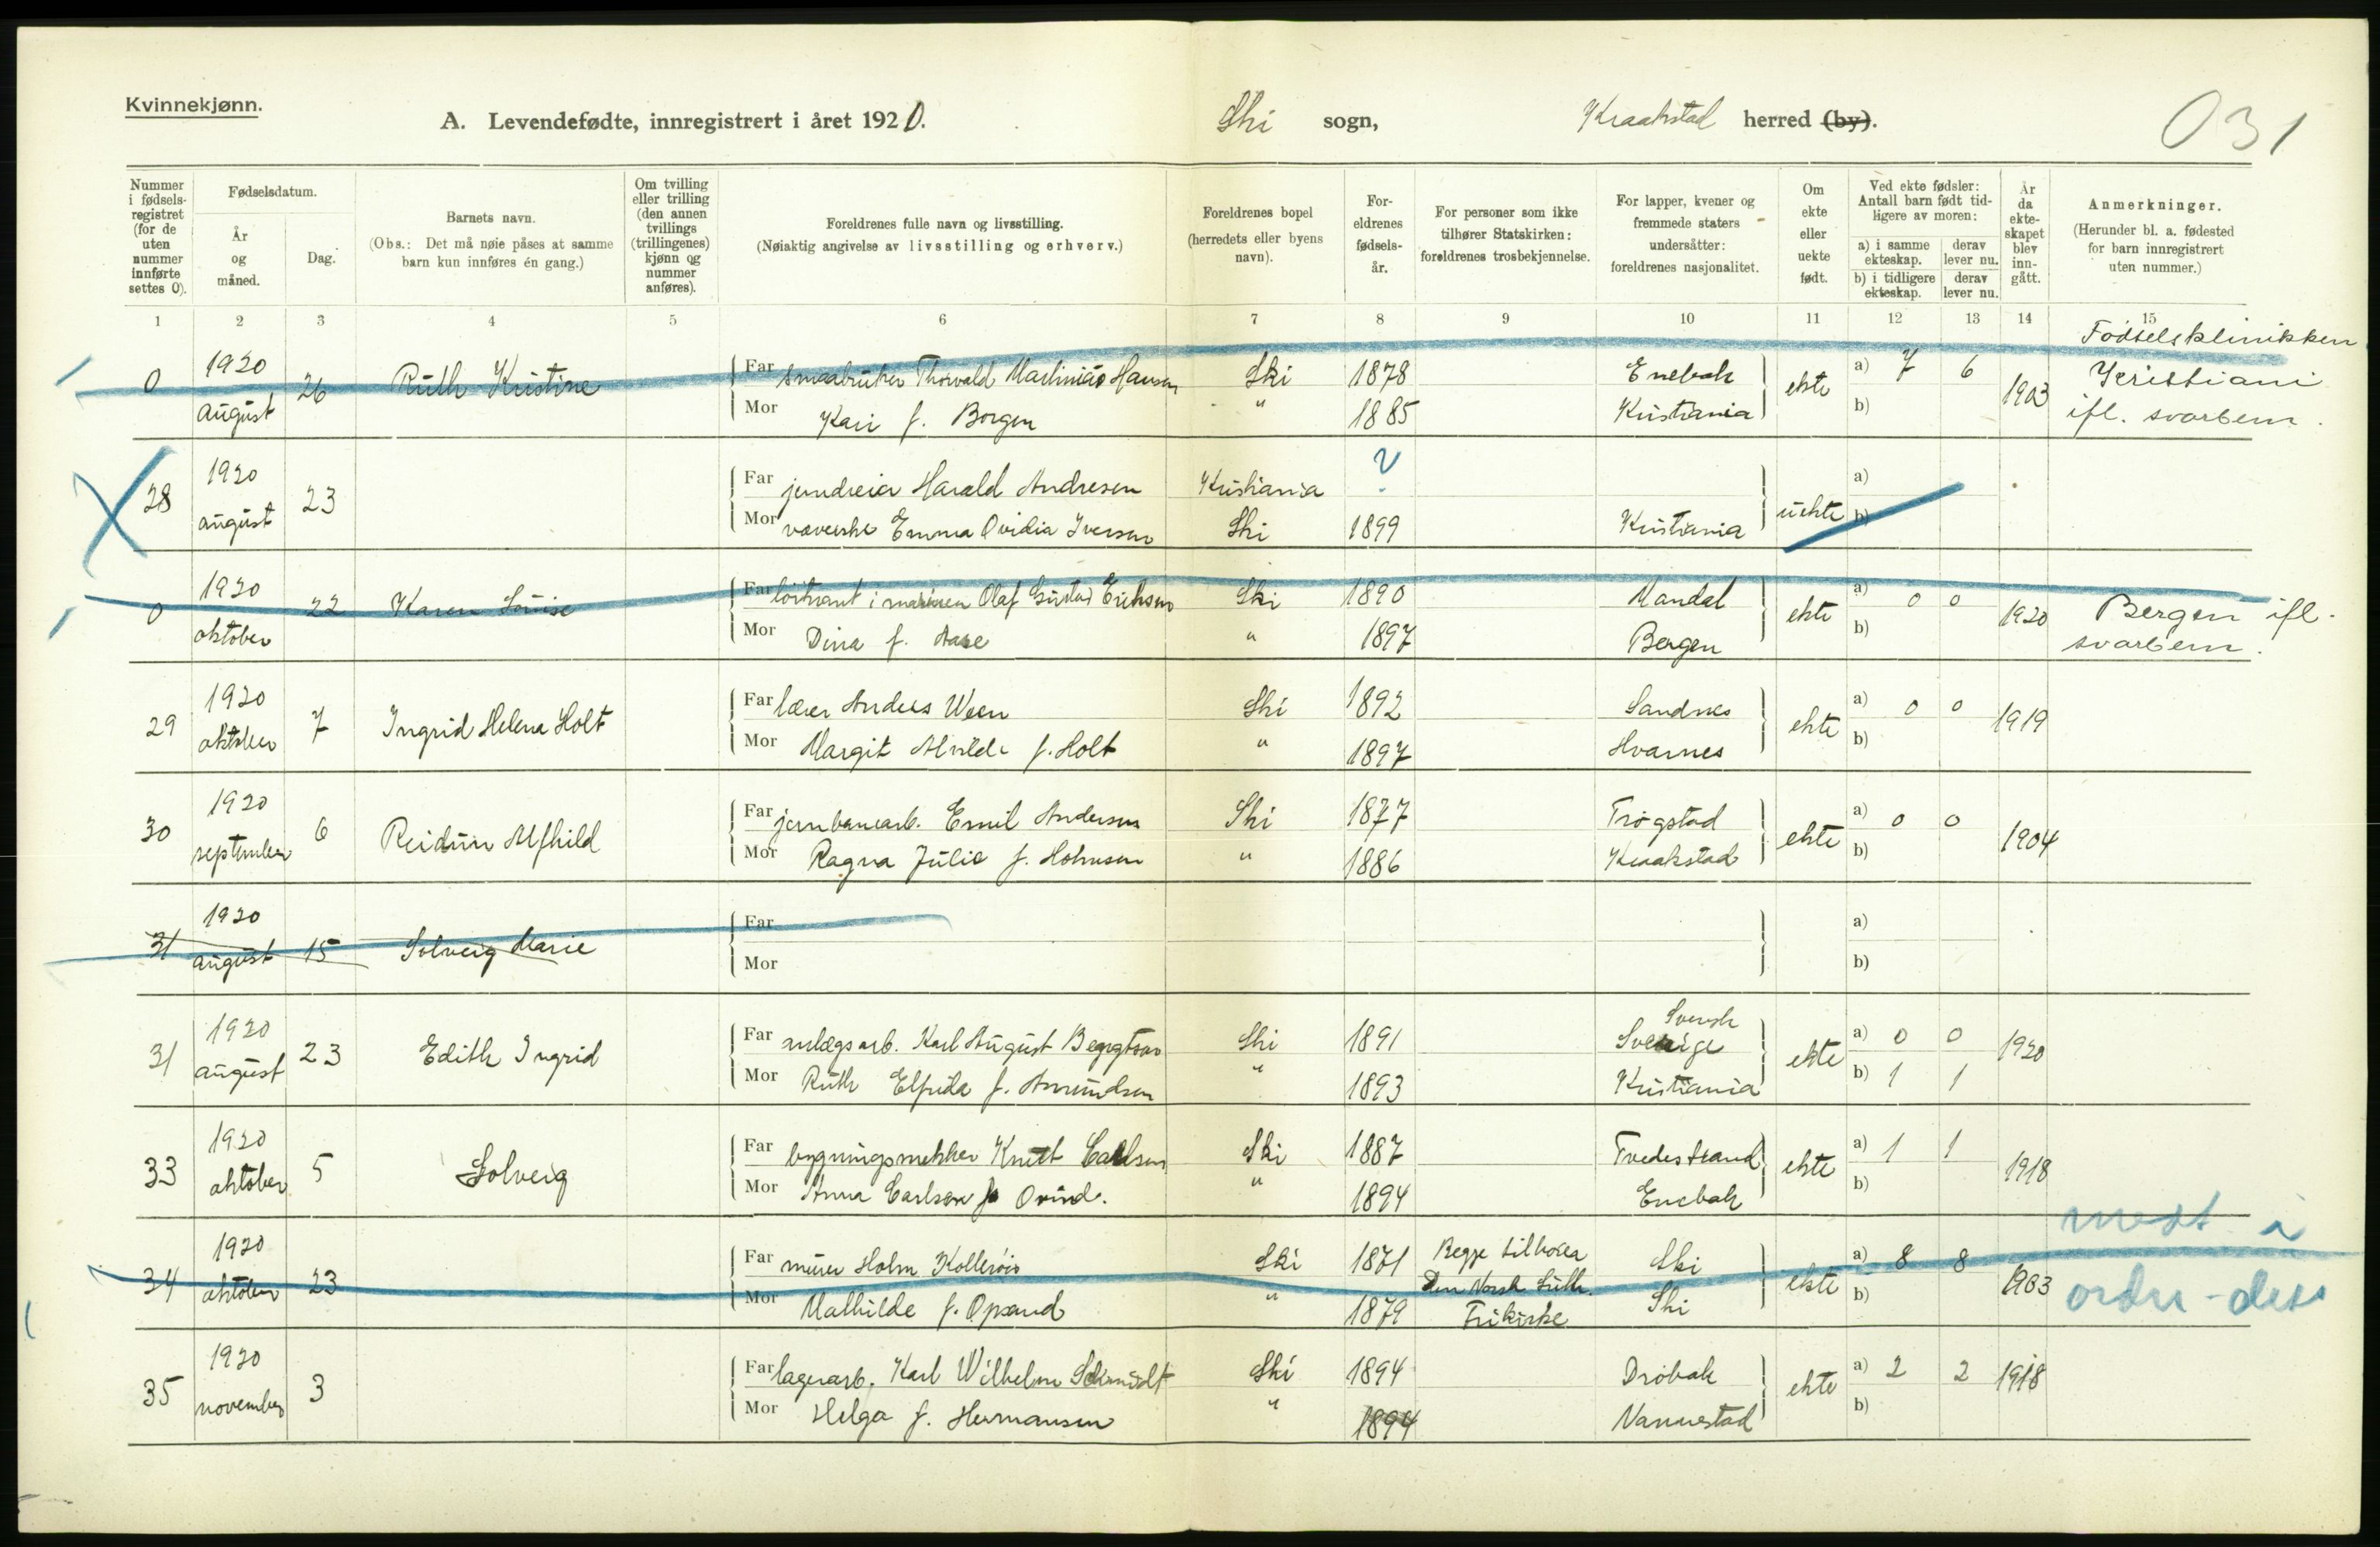 Kvinnekjønn.
A. Levendefødte, innregistrert i året 1920.
Ski sogn,
Kraakstad herred (by).
031
Nummer i fødselsregistret (for de uten nummer innførte settes 0).
Fødselsdatum.
År og måned.
Dag.
Barnets navn.
(Obs.: Det må nøie påses at samme barn kun innføres én gang.)
Om tvilling eller trilling (den annen tvillings (trillingenes) kjønn og nummer anføres).
Foreldrenes fulle navn og livsstilling.
(Nøiaktig angivelse av livsstilling og erhverv.)
Foreldrenes bopel (herredets eller byens navn).
Foreldrenes fødselsår.
For personer som ikke tilhører Statskirken: foreldrenes trosbekjennelse.
For lapper, kvener og fremmede staters undersåtter: foreldrenes nasjonalitet.
Om ekte eller uekte født.
Ved ekte fødsler: Antall barn født tidligere av moren:
a) i samme ekteskap. derav lever nu.
b) i tidligere ekteskap. derav lever nu.
År da ekteskapet blev inngått.
Anmerkninger.
(Herunder bl. a. fødested for barn innregistrert uten nummer.)
1 2 3 4 5 6 7 8 9 10 11 12 13 14 15
0 1920 august 26 Ruth Kristine
Far smaabruker Thorvald Martinius Hansen Ski 1878 Enebak ekte a) 7 6 1903
Mor Kari f. Borgen " 1885 Kristiania b)
Fødselsklinikken Kristiani ifl. svarbem.
28 1920 august 23
Far Harald Andresen Kristiania ?
Mor væverske Emma Ovidia Iversen Ski 1899 Kristiania uekte a) b)
0 1920 oktober 22 Karen Louise
Far løitnant i marinen Olaf Gustav Eriksen Ski 1890 Mandal ekte a) 0 0 1920
Mor Dina f. Aase " 1897 Bergen b)
Bergen ifl. svarbem.
29 1920 oktober 7 Ingrid Helena Holt
Far lærer Anders Ween Ski 1892 Sandnes ekte a) 0 0 1919
Mor Margit Alvilde f. Holt " 1897 Hvarnes b)
30 1920 september 6 Reidun Alfhild
Far jernbanearb. Emil Andersen Ski 1877 Trøgstad ekte a) 0 0 1904
Mor Ragna Julie f. Holmsen " 1886 Kraakstad b)
31 1920 august 15 Solveig Marie
Far a)
Mor b)
31 1920 august 23 Edith Ingrid
Far anlægsarb. Karl August Bengtson Ski 1891 Svensk Sverige ekte a) 0 0 1920
Mor Ruth Elfrida f. Amundsen " 1893 Kristiania b) 1 1
33 1920 oktober 5 Solveig
Far bygningssnekker Knut Carlsen Ski 1887 Tvedestrand ekte a) 1 1 1918
Mor Anna Carlsen f. " 1894 Enebak b)
34 1920 oktober 23
Far murer Holm Ski 1871 Begge tilhører Ski ekte a) 8 8 1903
Mor Mathilde f. Opsand " 1879 Den Norsk Luth. Frikirke Ski b)
35 1920 november 3
Far lagerarb. Karl Wilhelm Schmidt Ski 1894 Drøbak ekte a) 2 2 1918
Mor Helga f. Hermansen " 1894 Nannestad b)